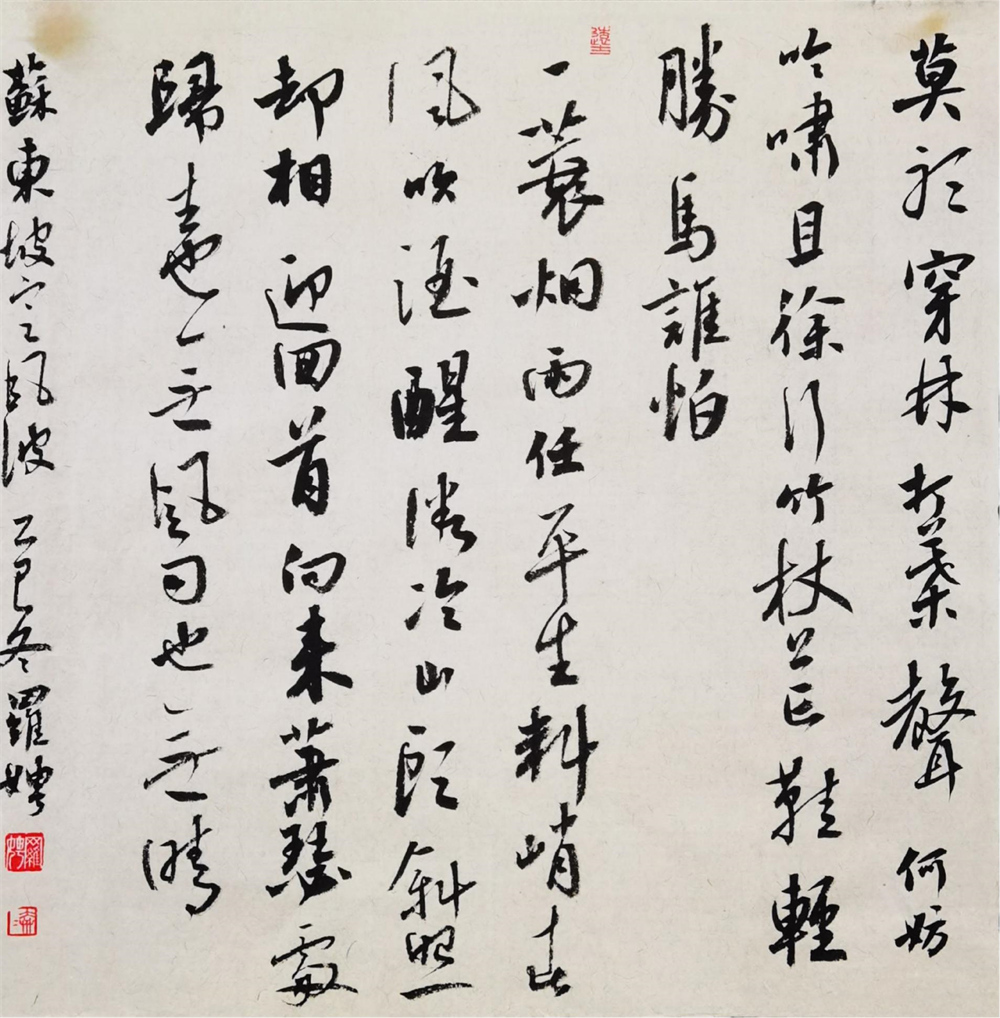 莫聽穿林打葉聲何妨
吟嘯且徐行竹杖芒鞋輕
勝馬誰怕
一蓑烟雨任平生料峭春
風吹酒醒微冷山頭斜照
却相迎回首向来蕭瑟處
歸去也无風雨也无晴
蘇東坡定風波 乙巳冬羅娉
羅娉